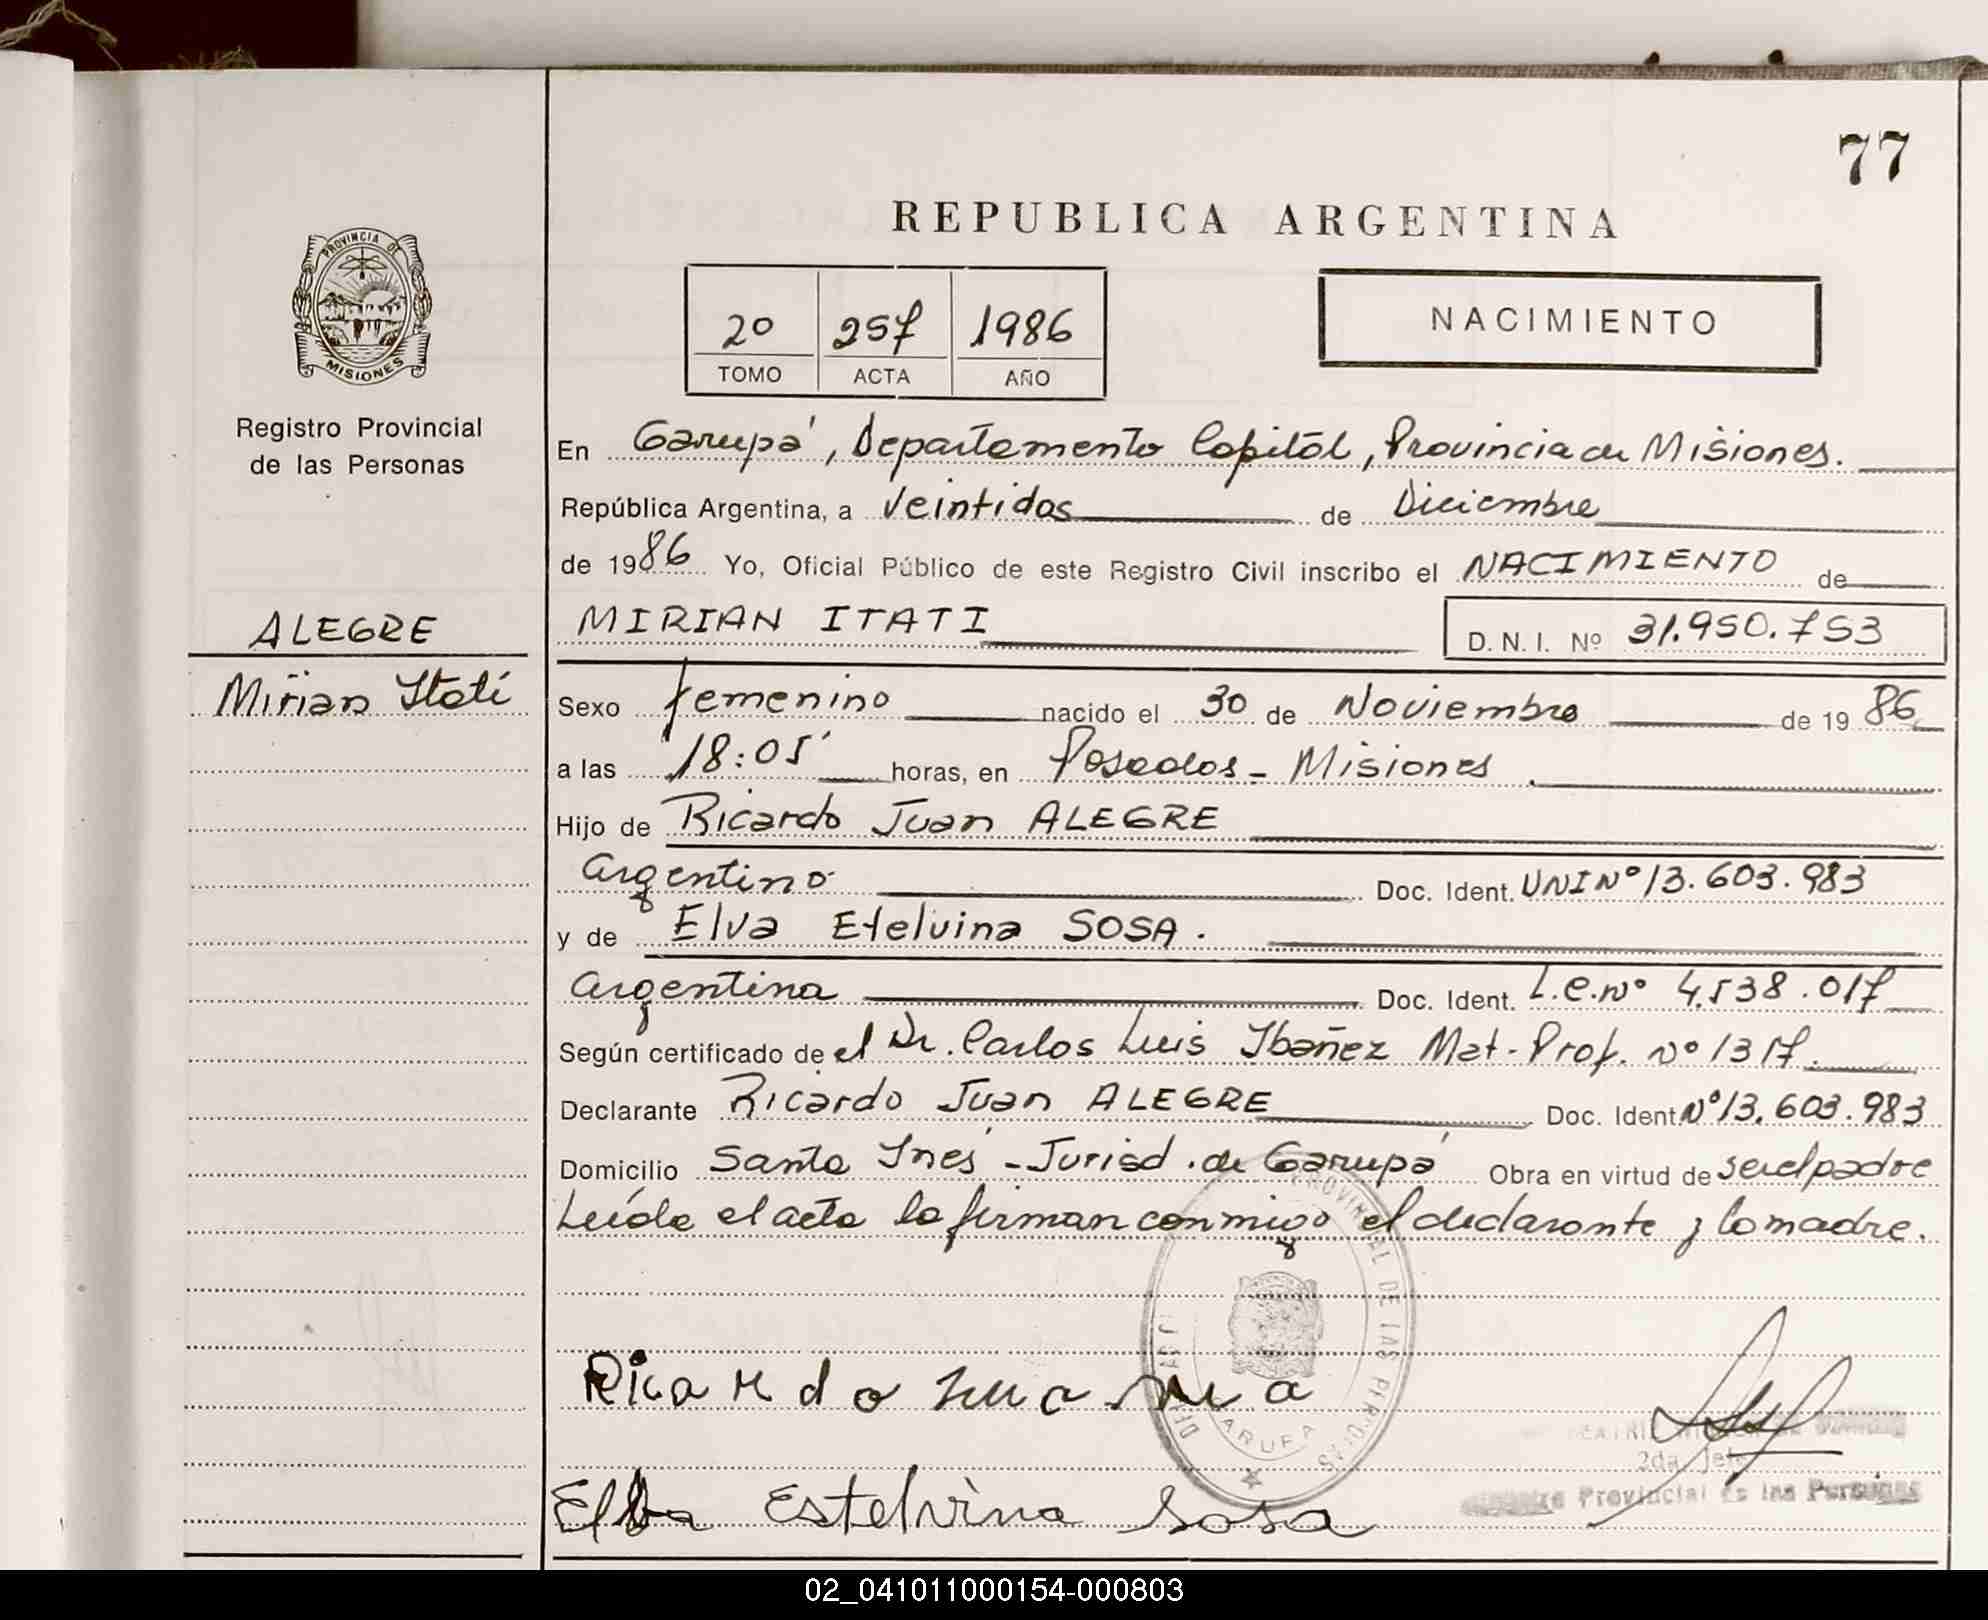 77
REPUBLICA ARGENTINA
PROVINCIA DE
MISIONES
Registro Provincial
de las Personas
2º 257 1986
TOMO ACTA AÑO
NACIMIENTO
En Garupá, Departamento Capital, Provincia de Misiones.
República Argentina, a Veintidos de Diciembre
de 1986 Yo, Oficial Público de este Registro Civil inscribo el NACIMIENTO de
ALEGRE
Mirian Itatí
MIRIAN ITATI D. N. I. Nº 31.950.753
Sexo femenino nacido el 30 de Noviembre de 1986
a las 18:05 horas, en Posadas - Misiones.
Hijo de Ricardo Juan ALEGRE
Argentino Doc. Ident. UNI Nº 13.603.983
y de Elva Etelvina SOSA.
Argentina Doc. Ident. L.C. Nº 4.538.017
Según certificado de el Dr. Carlos Luis Ibañez Mat. Prof. Nº 1317.
Declarante Ricardo Juan ALEGRE Doc. Ident. Nº 13.603.983
Domicilio Santa Inés - Jurisd. de Garupá Obra en virtud de ser el padre
Leída el acta la firman conmigo el declarante y la madre.
PROVINCIAL DE LAS PERSONAS
Elba Estelvina Sosa
2da. Jefe
Provincial de las Personas
02_041011000154-000803